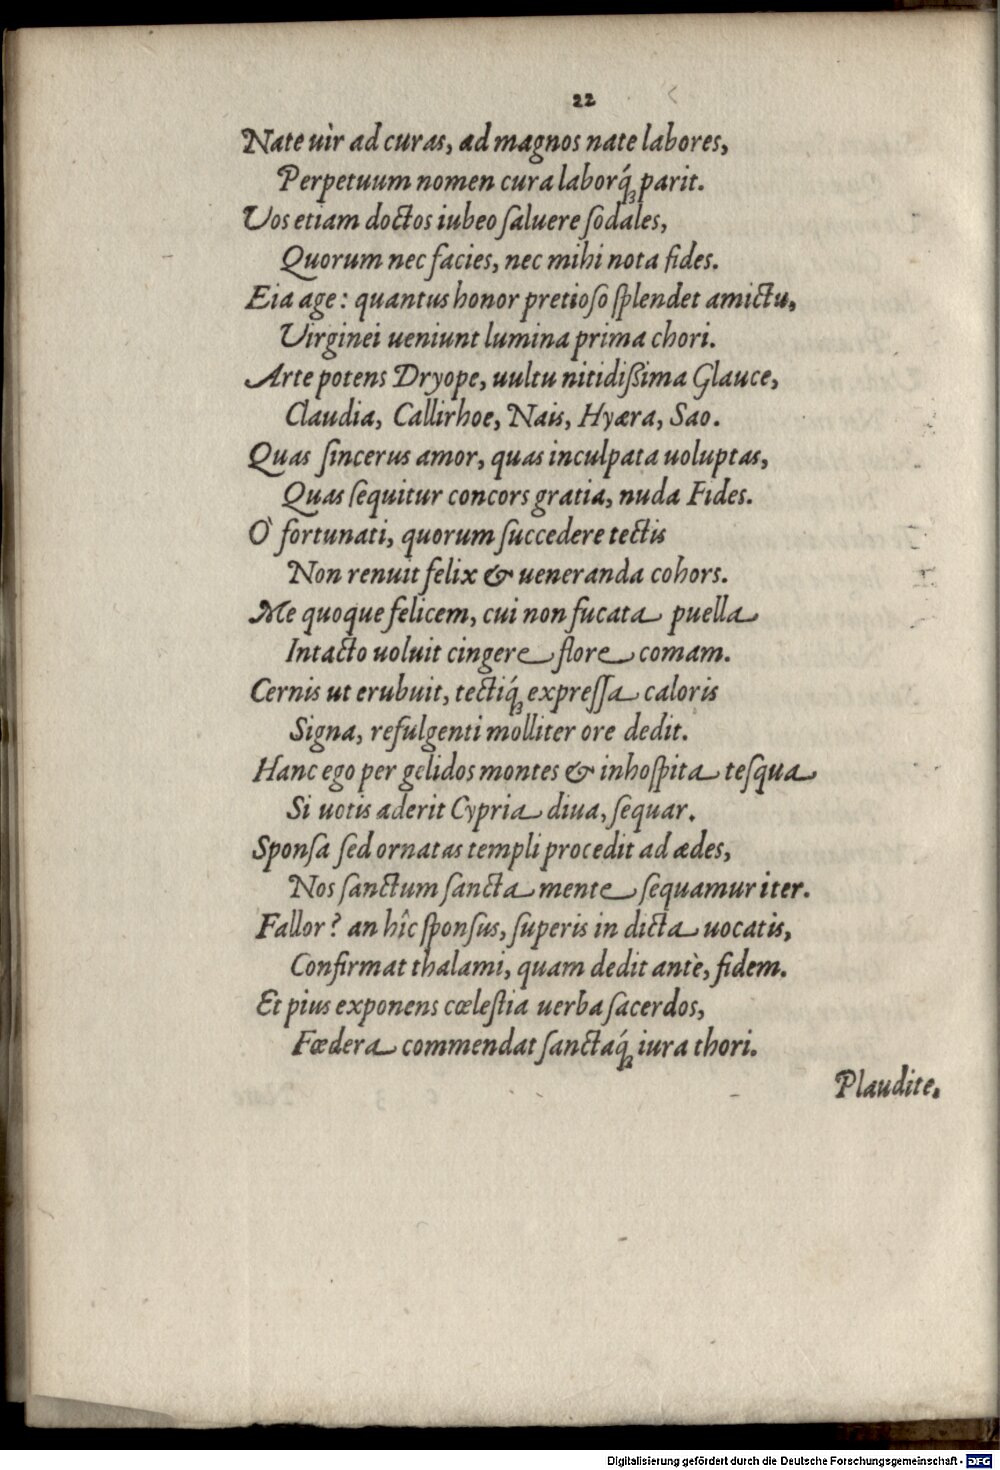 22
Nate uìr ad curas, ad magnos nate labores,
Perpetuum nomen cura laborq́ꝫ parit.
Uos etiam doctos iubeo ſaluere ſodales,
Quorum nec facies, nec mihi nota fides.
Eia age: quantus honor pretioſo ſplendet amictu,
Uirginei ueniunt lumina prima chori.
Arte potens Dryope, uultu nitidißima Glauce,
Claudia, Callirhoe, Nais, Hyæra, Sao.
Quas ſincerus amor, quas inculpata uoluptas,
Quas ſequitur concors gratia, nuda Fides.
Ò fortunati, quorum ſuccedere tectis
Non renuit felix & ueneranda cohors.
Me quoque felicem, cui non fucata puella
Intacto uoluit cingere flore comam.
Cernis ut erubuit, tectiq́ꝫ expreſſa caloris
Signa, refulgenti molliter ore dedit.
Hanc ego per gelidos montes & inhoſpita teſqua
Si uotis aderit Cypria diua, ſequar.
Sponſa ſed ornatas templi procedit ad ædes,
Nos ſanctum ſancta mente ſequamur iter.
Fallor? an hîc ſponſus, ſuperis in dicta uocatis,
Confirmat thalami, quam dedit antè, fidem.
Et pius exponens cœleſtia uerba ſacerdos,
Fœdera commendat ſanctaq́ꝫ iura thori.
Plaudite.
Digitalisierung gefördert durch die Deutsche Forschungsgemeinschaft - DFG